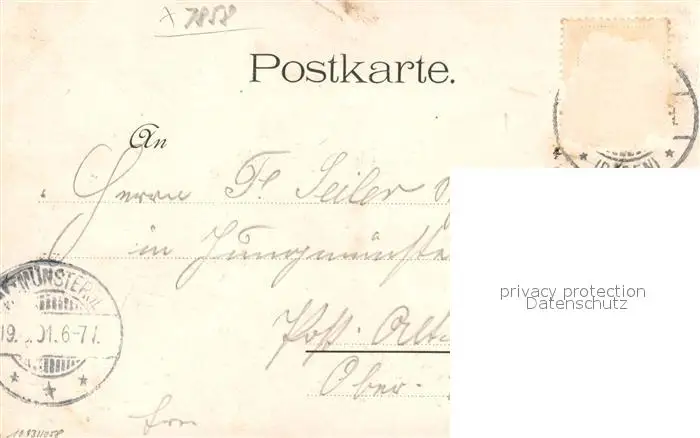 x 7858
Postkarte.
An
Herrn F. Seiler
in Jungmünste
Post. Alt
Ober.
MÜNSTER
19. 01. 6-7 V.
(BADEN)
privacy protection
Datenschutz